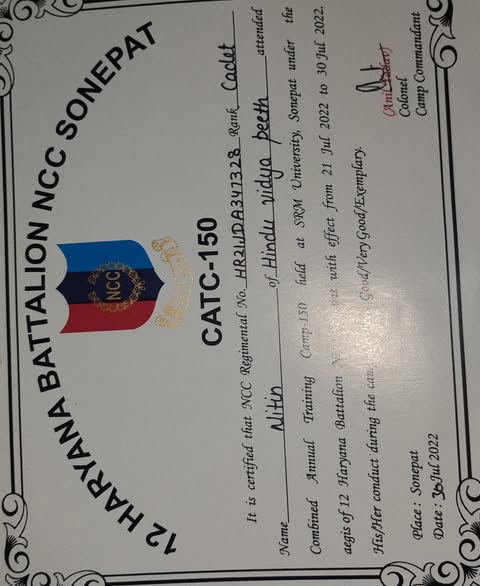 12 HARYANA BATTALION NCC SONEPAT
NCC
CATC-150
It is certified that NCC Regimental No. HR21JDA347328 Rank Cadet
Name Nitin of Hindu vidya peeth attended
Combined Annual Training Camp-150 held at SRM University, Sonepat under the
aegis of 12 Haryana Battalion with effect from 21 Jul 2022 to 30 Jul 2022.
His/Her conduct during the Good/Very Good/Exemplary.
(Anil Yadav)
Place : Sonepat Colonel
Date : 30 Jul 2022 Camp Commandant